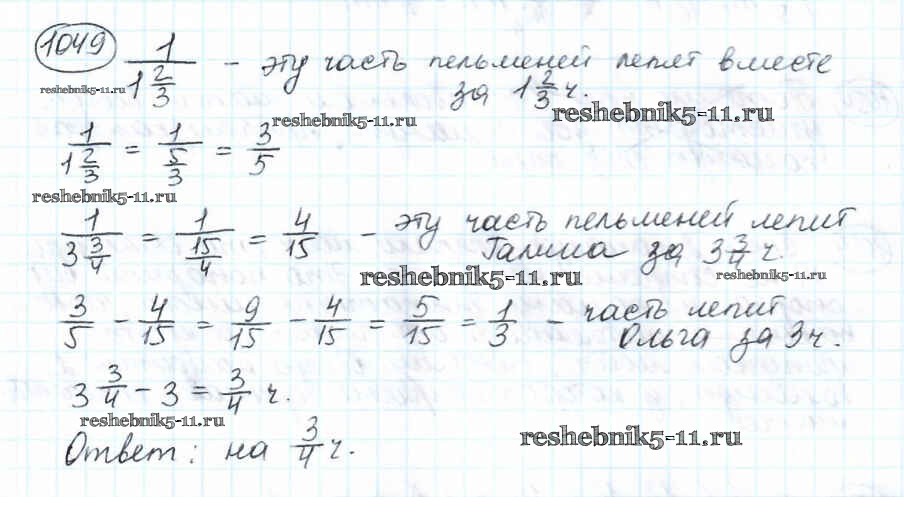 1049 1/(1 2/3) - эту часть пельменей лепят вместе
за 1 2/3 ч.
reshebnik5-11.ru
reshebnik5-11.ru
reshebnik5-11.ru
1/(1 2/3) = 1/(5/3) = 3/5
reshebnik5-11.ru
1/(3 3/4) = 1/(15/4) = 4/15 - эту часть пельменей лепит
Галина за 3 3/4 ч.
reshebnik5-11.ru
reshebnik5-11.ru
3/5 - 4/15 = 9/15 - 4/15 = 5/15 = 1/3 - часть лепит
Ольга за 3 ч.
3 3/4 - 3 = 3/4 ч.
reshebnik5-11.ru
Ответ: на 3/4 ч.
reshebnik5-11.ru